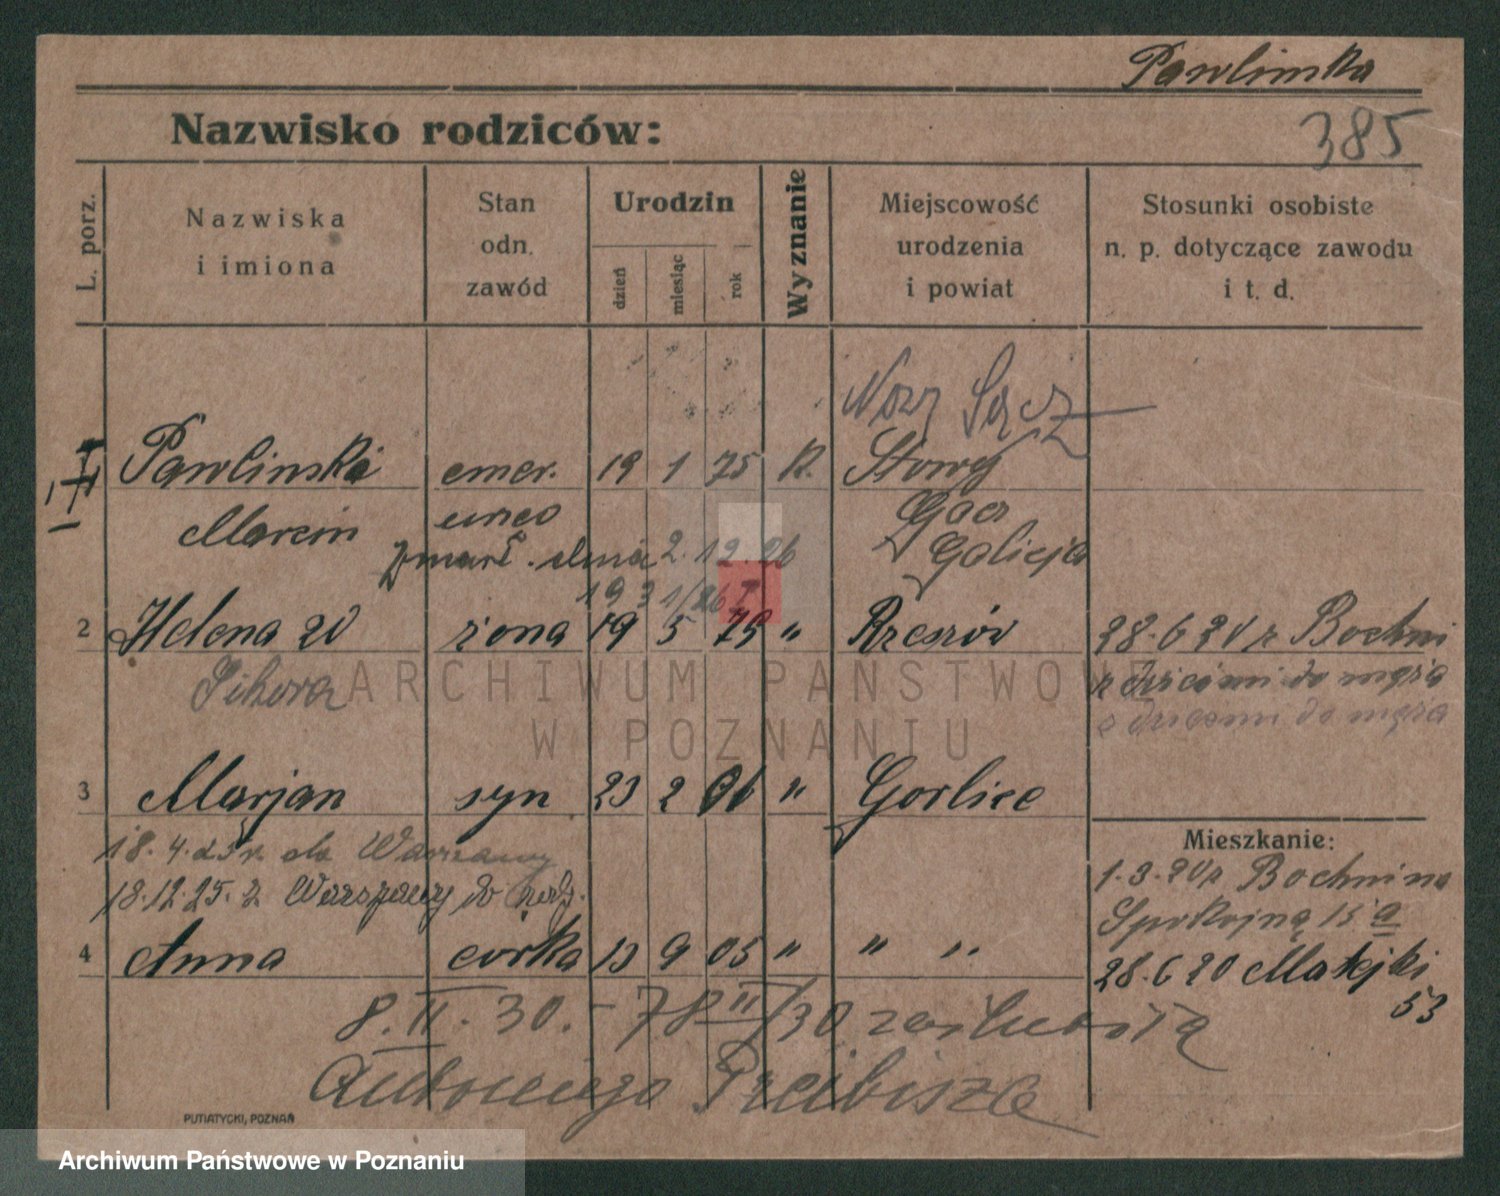 Pawlinska
385
Nazwisko rodziców:
L. porz.
Nazwiska
i imiona
Stan
odn.
zawód
Urodzin
dzień
miesiąc
rok
Wyznanie
Miejscowość
urodzenia
i powiat
Stosunki osobiste
n. p. dotyczące zawodu
i t. d.
Nowy Sącz
Pawlinski emer. 19 1 75 R. Stowy
Marcin
Galicja
zmarł dnia 2.12.26
2 Helena zd żona 19 5 79 " Rzeszów 28.6 20 z Bochni
Sikora z dziećmi do męża
z dziećmi do męża
3 Marjan syn 23 2 06 " Gorlice
Mieszkanie:
18.4.25 r. do Warszawy
18.12.25. z Warszawy do
1.3.20 z Bochni na
Spokojną 15 a
4 Anna corka 13 9 05 " " "
28.6 20 Matejki
53
8.II.30. - 78 II/30 zaślubiła
Antoniego
PUTIATYCKI, POZNAŃ
ARCHIWUM PAŃSTWOWE
W POZNANIU
Archiwum Państwowe w Poznaniu